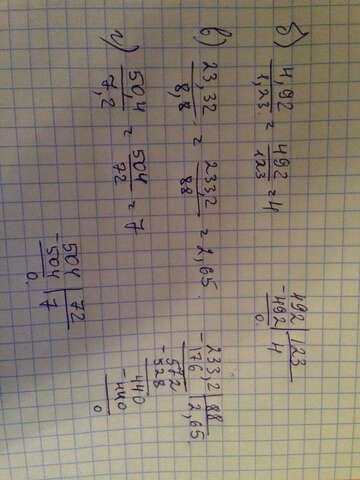 б) 4,92 / 1,23 = 492 / 123 = 4
-492 | 123
492 | 4
0
в) 23,32 / 8,8 = 233,2 / 88 = 2,65
-233,2 | 88
176 | 2,65
-572
528
-440
440
0
г) 50,4 / 7,2 = 504 / 72 = 7
-504 | 72
504 | 7
0